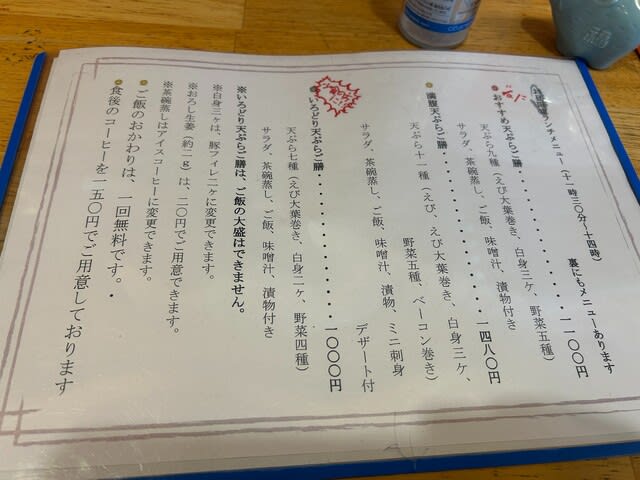 ランチメニュー（十一時三〇分～十四時）　裏にもメニューあります
おすすめ天ぷらご膳・・・・・・・・・・・・・・一一〇〇円
天ぷら九種（えび大葉巻き、白身三ケ、野菜五種）
サラダ、茶碗蒸し、ご飯、味噌汁、漬物付き
満腹天ぷらご膳・・・・・・・・・・・・・・一四八〇円
天ぷら十一種（えび、えび大葉巻き、白身三ケ、
野菜五種、ベーコン巻き）
サラダ、茶碗蒸し、ご飯、味噌汁、漬物、ミニ刺身
デザート付
いろどり天ぷらご膳・・・・・・・・・・・・・・一〇〇〇円
天ぷら七種（えび大葉巻き、白身二ケ、野菜四種）
サラダ、茶碗蒸し、ご飯、味噌汁、漬物付き
※いろどり天ぷらご膳は、ご飯の大盛はできません。
※白身三ケは、豚フィレ二ケに変更できます。
※おろし生姜（約二g）は、二〇円でご用意できます。
※茶碗蒸しはアイスコーヒーに変更できます。
ご飯のおかわりは、一回無料です。・
食後のコーヒーを一五〇円でご用意しております